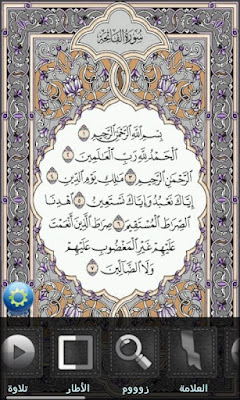 سُورَةُ الفَاتِحَةِ
بِسْمِ اللَّهِ الرَّحْمَٰنِ الرَّحِيمِ ١
الْحَمْدُ لِلَّهِ رَبِّ الْعَالَمِينَ ٢
الرَّحْمَٰنِ الرَّحِيمِ ٣ مَالِكِ يَوْمِ الدِّينِ ٤
إِيَّاكَ نَعْبُدُ وَإِيَّاكَ نَسْتَعِينُ ٥ اهْدِنَا
الصِّرَاطَ الْمُسْتَقِيمَ ٦ صِرَاطَ الَّذِينَ أَنْعَمْتَ
عَلَيْهِمْ غَيْرِ الْمَغْضُوبِ عَلَيْهِمْ
وَلَا الضَّالِّينَ ٧
العلامة زووووم الأطار تلاوة